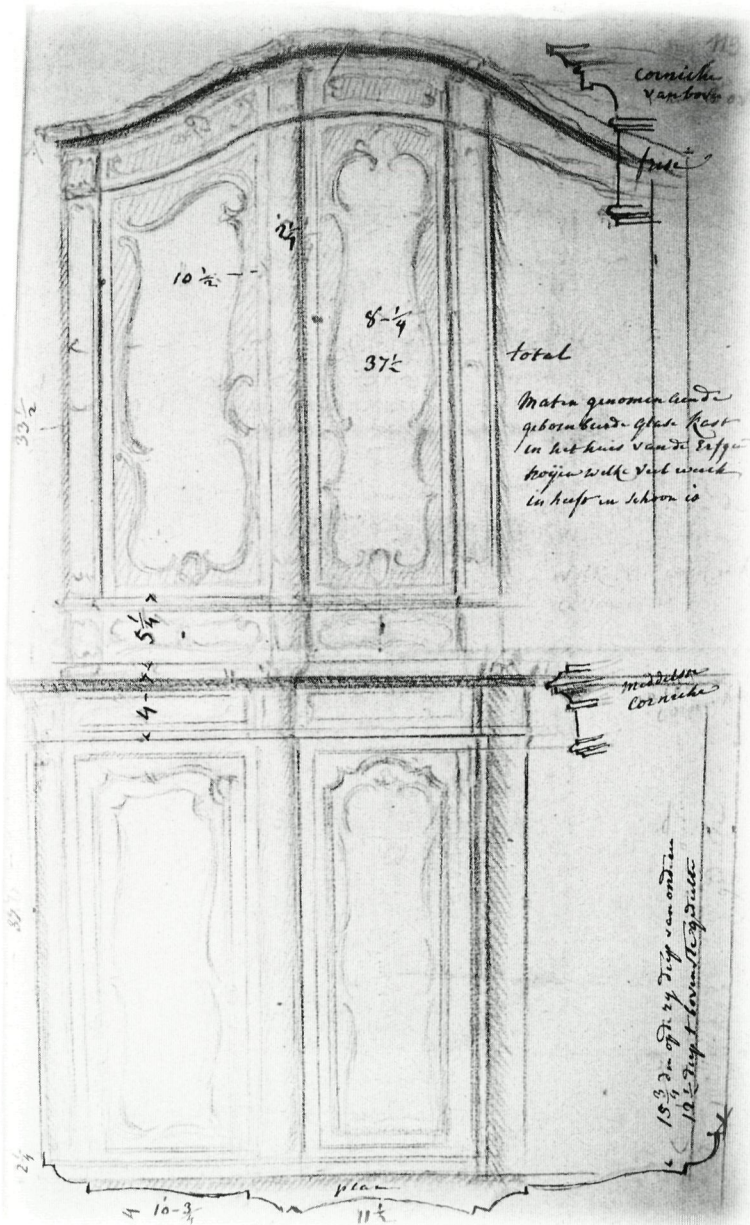 113
Corniche
van bove
frise
2 1/4
10 1/2
8 - 1/4
37 1/2
total
33 1/2
Maten genomen aende
glase kast
in het huis van de Erfge
welke veel werck
in heeft en schoon is
5 1/4
4
Middelste
Corniche
15 3/4 dm op de zy diep van onderen
12 1/2 diep t bovenste gedeelte
2 1/4
plan
4 10 - 3/4
11 1/2